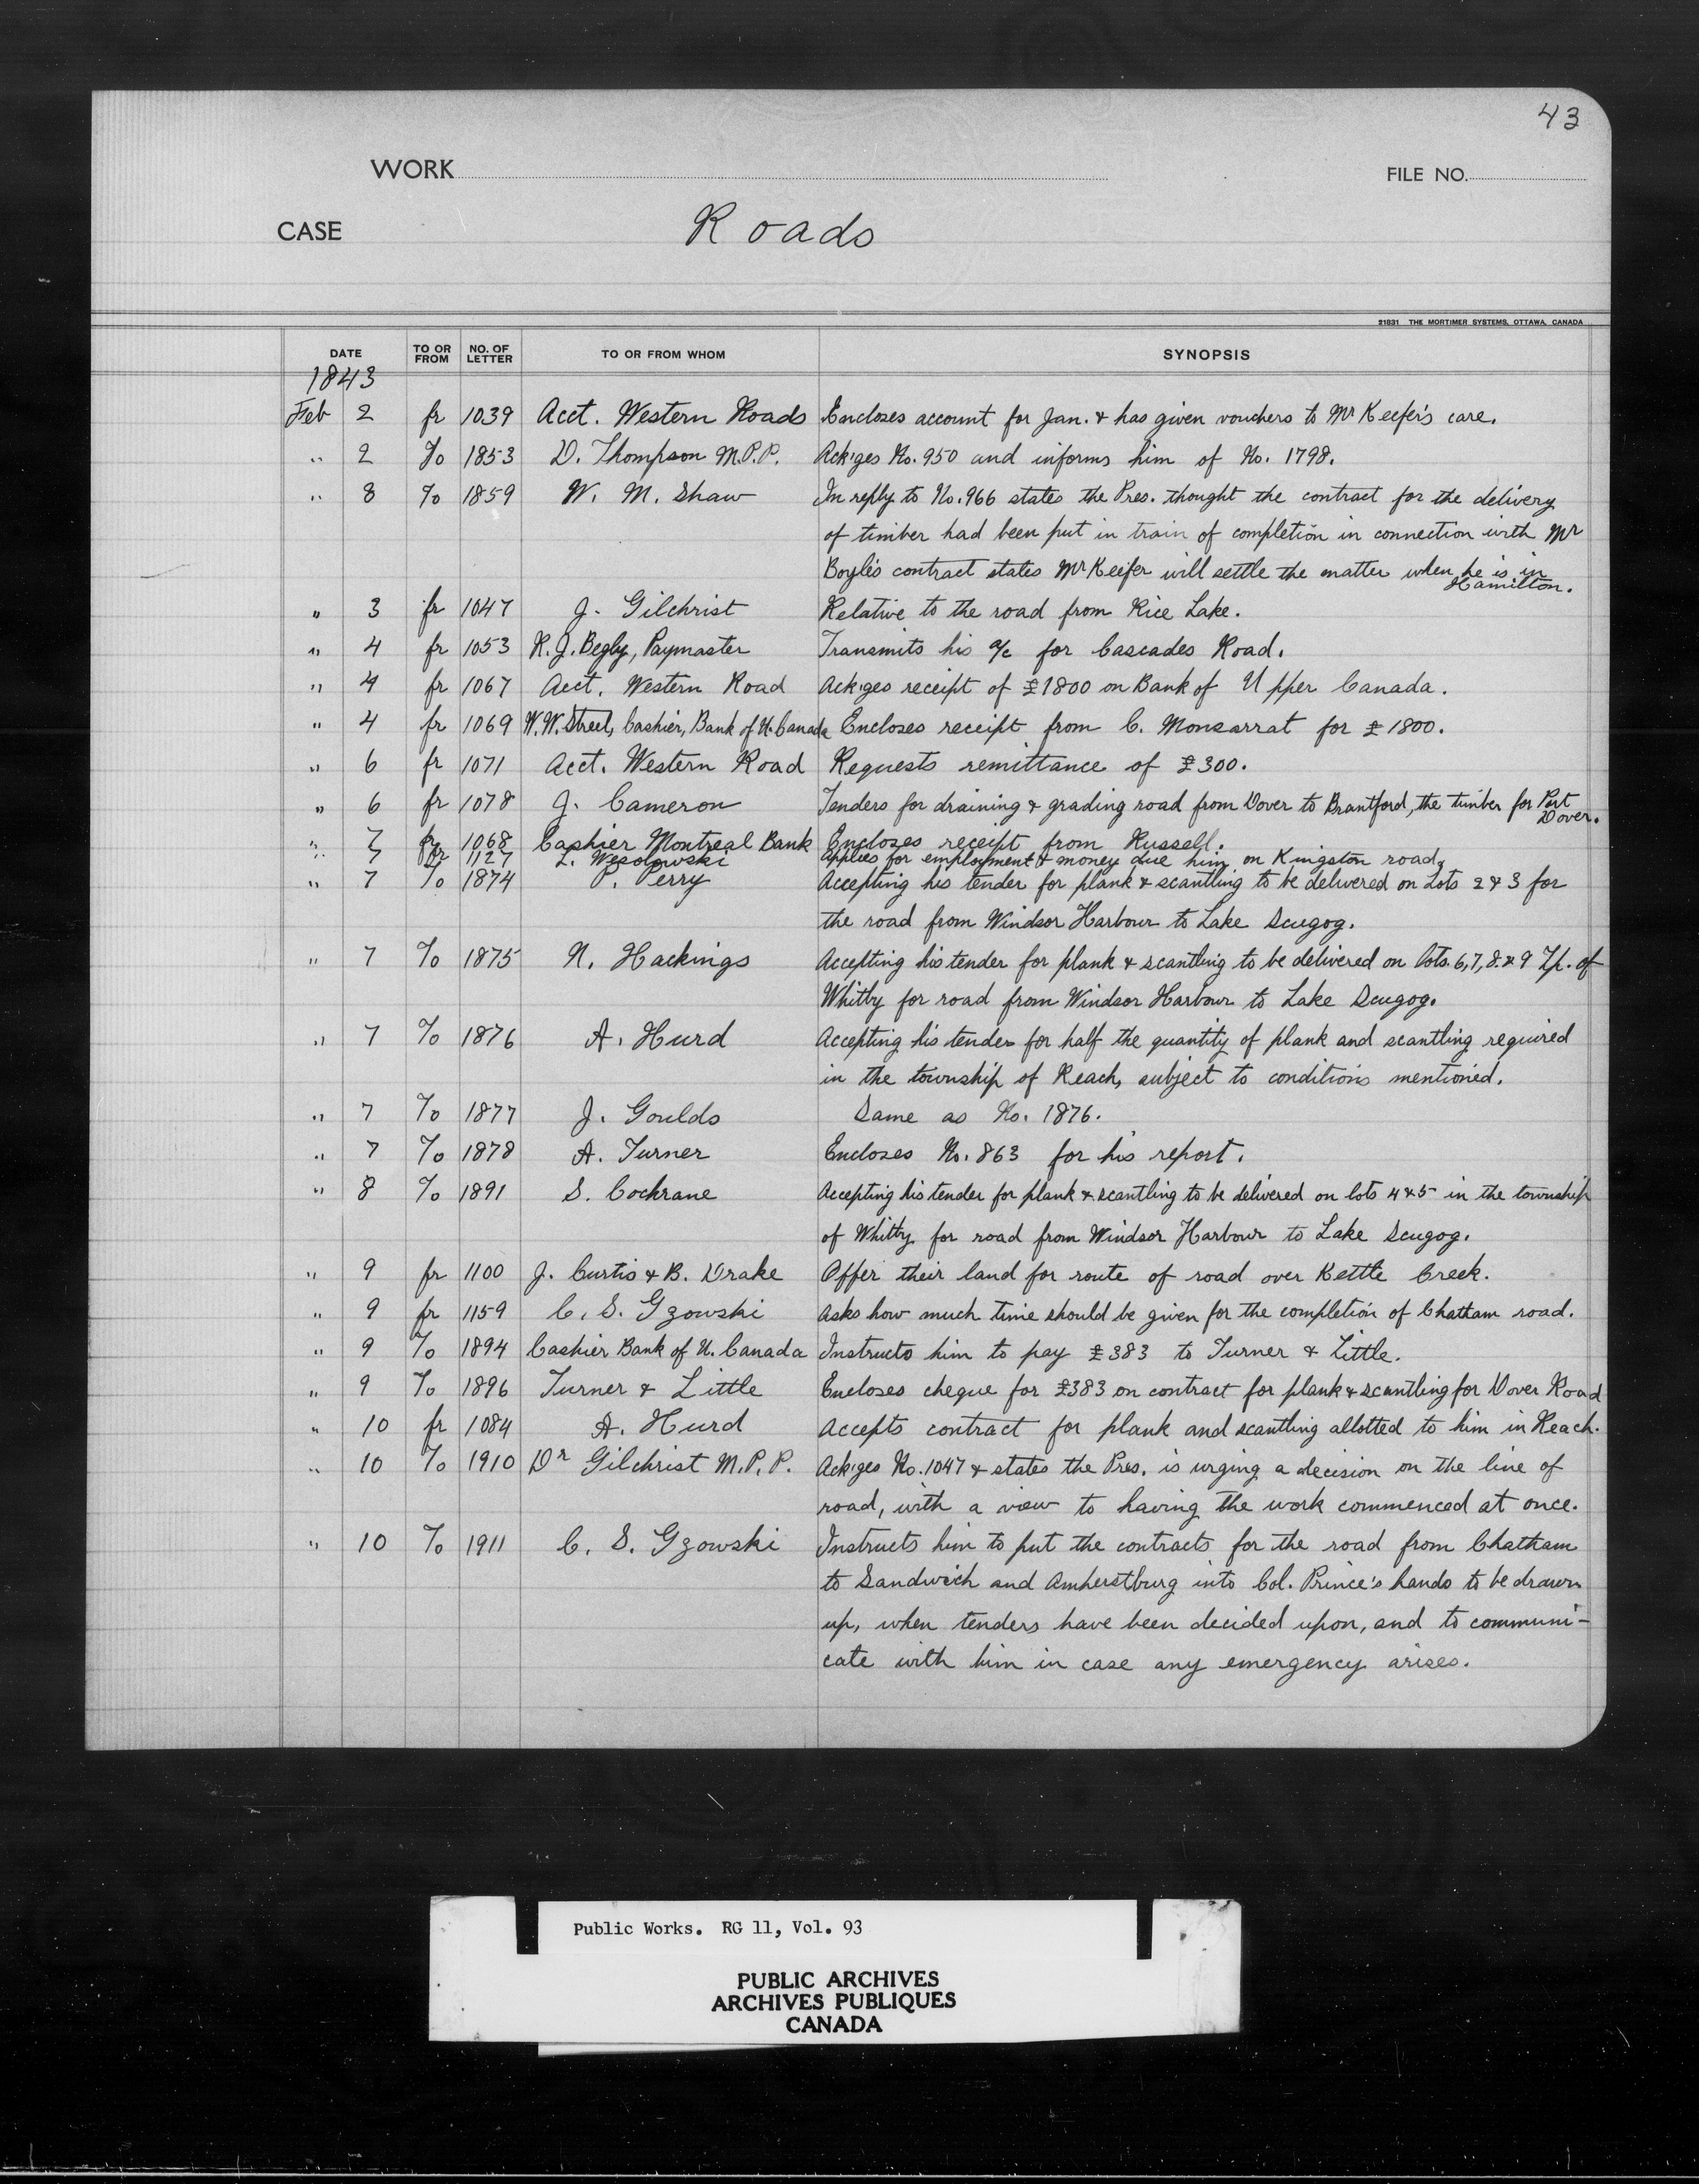 43
WORK FILE NO.
CASE Roads
21831 THE MORTIMER SYSTEMS, OTTAWA, CANADA
DATE TO OR FROM NO. OF LETTER TO OR FROM WHOM SYNOPSIS
1843
Feb 2 fr 1039 Acct. Western Roads Encloses account for Jan. & has given vouchers to Mr Keefer's care.
" 2 To 1853 D. Thompson M.P.P. Ack'ges No. 950 and informs him of No. 1798.
" 8 To 1859 W. M. Shaw In reply to No. 966 states the Pres. thought the contract for the delivery
of timber had been put in train of completion in connection with Mr
Boyle's contract states Mr Keefer will settle the matter when he is in
Hamilton.
" 3 fr 1047 J. Gilchrist Relative to the road from Rice Lake.
" 4 fr 1053 R.J. Begly, Paymaster Transmits his a/c for Cascades Road.
" 4 fr 1067 Acct. Western Road Ack'ges receipt of £1800 on Bank of Upper Canada.
" 4 fr 1069 W.W. Street, Cashier, Bank of U. Canada Encloses receipt from C. Monsarrat for £1800.
" 6 fr 1071 Acct. Western Road Requests remittance of £300.
" 6 fr 1078 J. Cameron Tenders for draining & grading road from Dover to Brantford, the timber for Port
Dover.
" 7 fr 1068 Cashier Montreal Bank Encloses receipt from Russell.
" 7 fr 1127 L. Wesolowski Applies for employment & money due him on Kingston road.
" 7 To 1874 P. Perry Accepting his tender for plank & scantling to be delivered on Lots 2 & 3 for
the road from Windsor Harbour to Lake Scugog.
" 7 To 1875 N. Hackings Accepting his tender for plank & scantling to be delivered on lots. 6, 7, 8. & 9 Tp. of
Whitby for road from Windsor Harbour to Lake Scugog.
" 7 To 1876 A. Hurd Accepting his tender for half the quantity of plank and scantling required
in the township of Reach, subject to conditions mentioned.
" 7 To 1877 J. Goulds Same as No. 1876.
" 7 To 1878 A. Turner Encloses No. 863 for his report.
" 8 To 1891 S. Cochrane Accepting his tender for plank & scantling to be delivered on lots 4 & 5 in the township
of Whitby for road from Windsor Harbour to Lake Scugog.
" 9 fr 1100 J. Curtis & B. Drake Offer their land for route of road over Kettle Creek.
" 9 fr 1159 C. S. Gzowski Asks how much time should be given for the completion of Chatham road.
" 9 To 1894 Cashier Bank of U. Canada Instructs him to pay £383 to Turner & Little.
" 9 To 1896 Turner & Little Encloses cheque for £383 on contract for plank & scantling for Dover Road
" 10 fr 1084 A. Hurd Accepts contract for plank and scantling allotted to him in Reach.
" 10 To 1910 Dr Gilchrist M.P.P. Ack'ges No. 1047 & states the Pres. is urging a decision on the line of
road, with a view to having the work commenced at once.
" 10 To 1911 C. S. Gzowski Instructs him to put the contracts for the road from Chatham
to Sandwich and Amherstburg into Col. Prince's hands to be drawn
up, when tenders have been decided upon, and to communi-
cate with him in case any emergency arises.
Public Works. RG 11, Vol. 93
PUBLIC ARCHIVES
ARCHIVES PUBLIQUES
CANADA